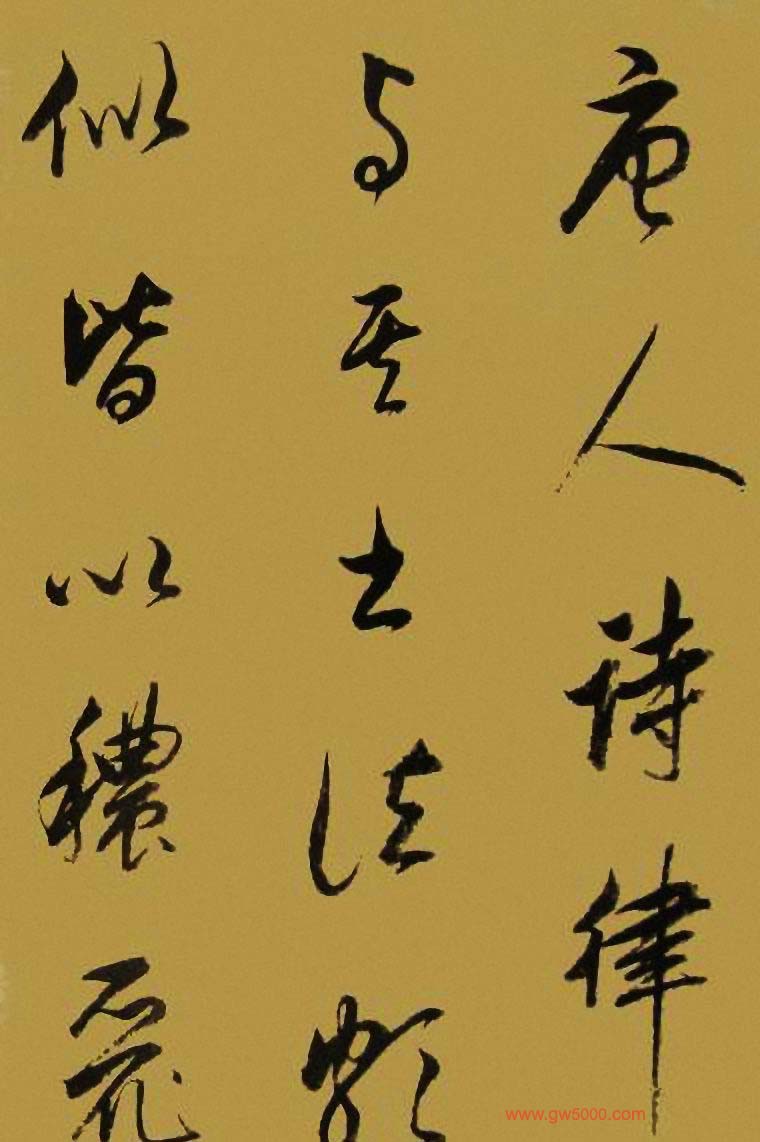 唐人詩律
与其书法頗
似皆以穠麗
www.gw5000.com